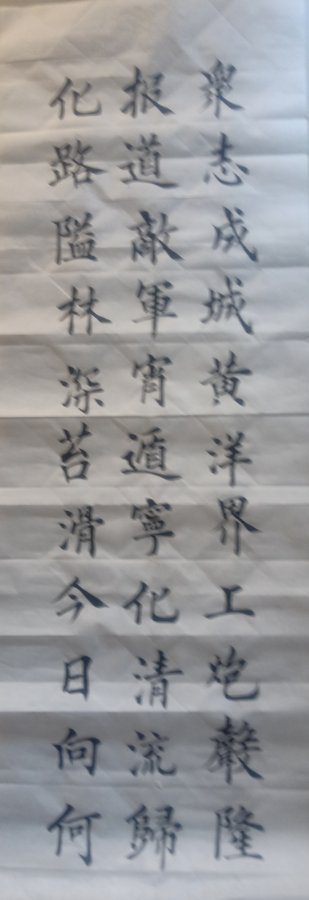 眾志成城黃洋界工炮聲隆
报道敵軍宵遁寧化清流歸
化路隘林深苔滑今日向何